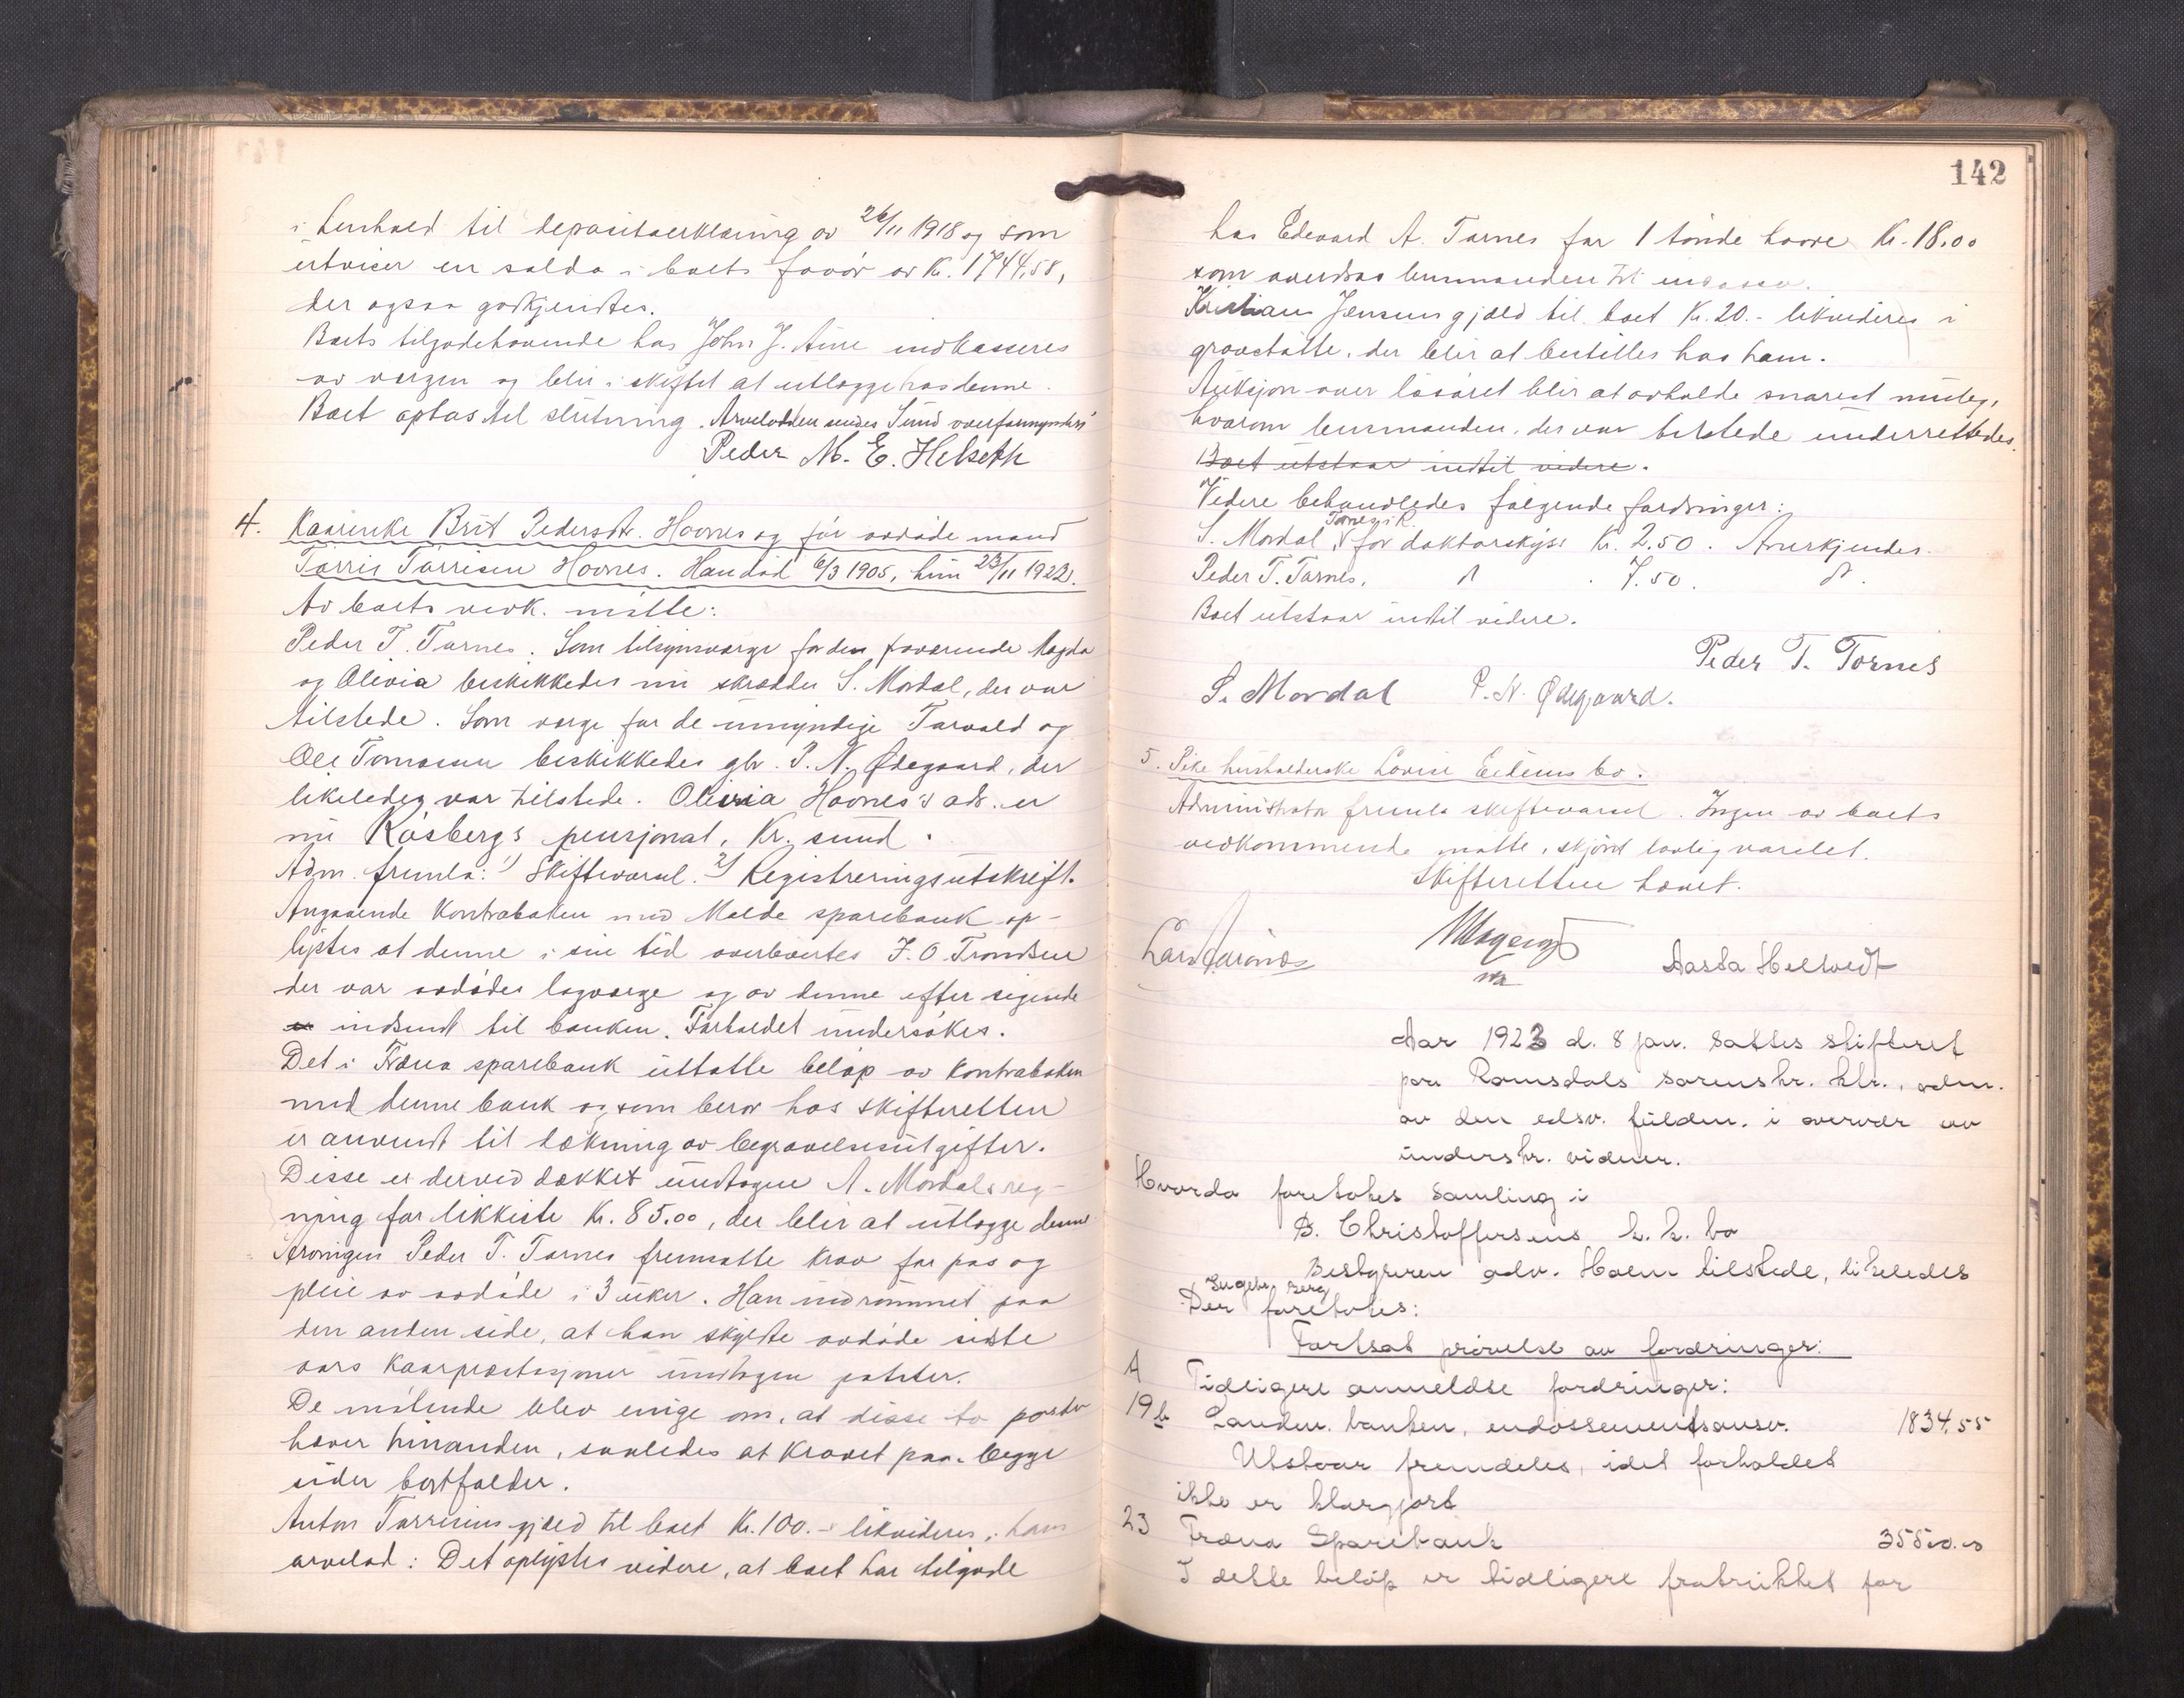 i henhold til depositaerklæring av 26/11 1918 og som
utviser en saldo i boets favør av Kr. 1744,58,
der ogsaa godkjendtes.
Boets tilgodehavende hos John J. Aure indkasseres
av vergen og blir i skiftet at utlægge hos denne.
Boet optas til slutning. Arvelodden sendes Sund overformynderi
Peder M. E. Helseth
4. Kaarenke Brit Pedersdtr. Hovnes og før avdøde mand
Tørris Tørrisen Hovnes. Han død 6/3 1905, hun 23/11 1922.
Av boets vedk. møtte:
Peder T. Tornes. Som tilsynsverge for den fraværende Magda
og Olivia beskikkedes nu skrædder S. Mordal, der var
tilstede. Som verge for de umyndige Torvald og
Ole Tomassen beskikkedes gbr. P. N. Ødegaard, der
likeledes var tilstede. Olivia Hovnes's adr. er
nu Røsbergs pensjonat, Kr.sund.
Adm. fremla: 1) Skiftevarsel. 2) Registreringsutskrift.
Angaaende Kontraboken med Molde sparebank op-
lystes at denne i sin tid overleveredes J. O. Trondsen
der var avdødes lagverge og av denne efter sigende
indsendt til banken. Forholdet undersøkes.
Det i Fræna sparebank uttatte beløp av Kontraboken
med denne bank og som beror hos skifteretten
er anvendt til dækning av begravelsesutgifter.
Disse er derved dækket undtagen A. Mordals reg-
ning for likkiste Kr. 85.00, der blir at utlægge denne
Arvingen Peder T. Tornes fremsatte krav for pas og
pleie av avdøde i 3 uker. Han indrømmet paa
den anden side, at han skyldte avdøde sidste
aars kaarprestasjoner undtagen poteter.
De møtende blev enige om, at disse to poster
hæver hinanden, saaledes at kravet paa begge
sider bortfalder.
Anton Tørrisens gjæld til boet Kr. 100.- likvideres i hans
arvelod: Det oplystes videre, at boet har tilgode
142
hos Edevard A. Tornes for 1 tønde havre Kr. 18.00
som overdras lensmanden til incasso.
Kristian Jensens gjæld til boet Kr. 20.- likvideres i
gravstøtte, der blir at bestilles hos ham.
Auksjon over løsøret blir at avholde snarest mulig,
hvorom lensmanden, der var tilstede underrettedes.
Boet utstaar indtil videre.
Videre behandledes følgende fordringer:
Tornes i R.
S. Mordal, for doktorskyss Kr. 2.50. Anerkjendes.
Peder T. Tornes, " 7.50. "
Boet utstaar indtil videre.
Peder T. Tornes
S. Mordal P. N. Ødegaard.
5. Pike husholderske Lovise Eidems bo.
Administrator fremla skiftevarsel. Ingen av boets
vedkommende møtte, skjønt lovlig varslet.
Skifteretten hævet.
Aasta Hellvedt
Aar 1923 d. 8 jan. sattes skifteret
paa Romsdals sorenskr. ktr., adm.
av den edsv. fuldm. i overvær av
underskr. vidner.
Hvorda foretokes samling i
B. Christoffersens k. k. bo
Bestyreren adv. Holm tilstede, likeledes
Engebr. Berg
Der foretokes:
Fortsat prøvelse av fordringer:
A Tidligere anmeldte fordringer:
19b Landm. banken, endossementsansv. 1834.55
Utstaar fremdeles, idet forholdet
ikke er klargjort
23 Fræna Sparebank 35500.00
I dette beløp er tidligere fratrukket for